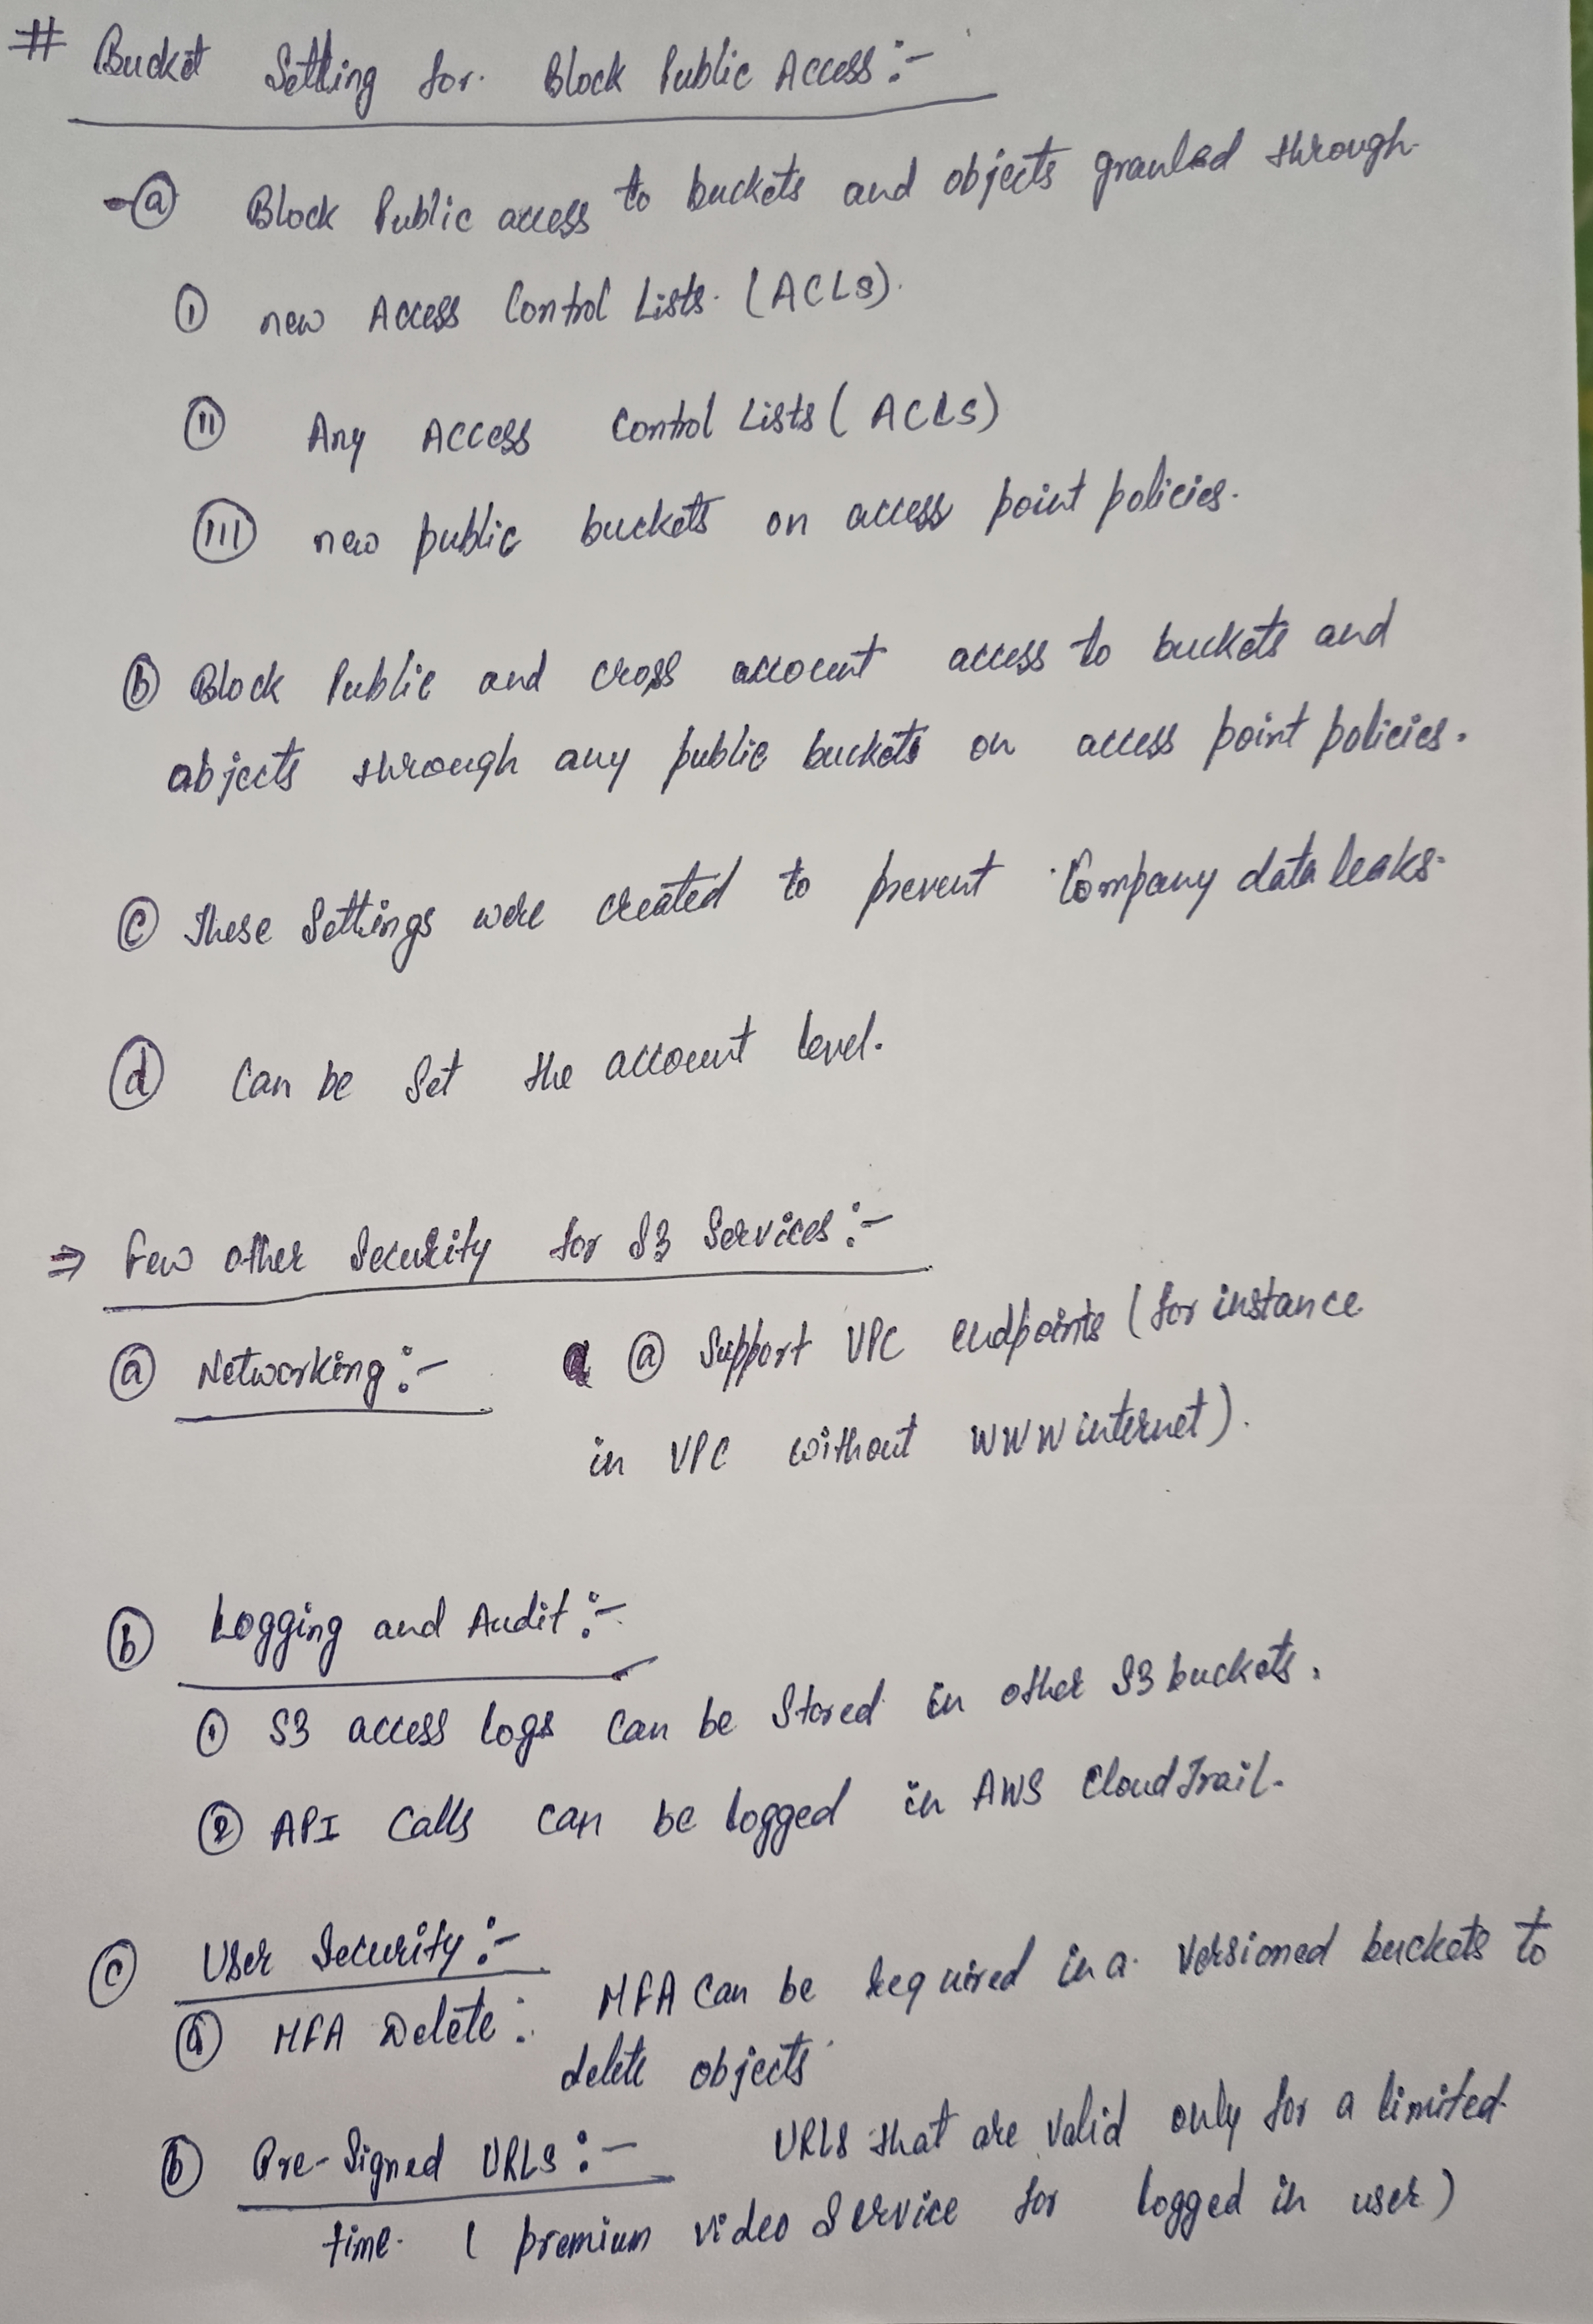 # Bucket Setting for Block Public Access :-
(a) Block Public access to buckets and objects granted through
(i) new Access Control Lists. (ACLs).
(ii) Any Access Control Lists (ACLS)
(iii) new public buckets on access point policies.
(b) Block Public and cross account access to buckets and
objects through any public buckets on access point policies.
(c) These Settings were created to prevent Company data leaks.
(d) Can be Set the account level.
⇒ Few other Security for S3 Services :-
(a) Networking :- (a) Support VPC endpoints (for instance
in VPC without WWW internet).
(b) Logging and Audit :-
(1) S3 access logs can be Stored in other S3 buckets.
(2) API Calls can be logged in AWS CloudTrail.
(c) User Security :-
(a) MFA Delete : MFA can be required in a versioned buckets to
delete objects
(b) Pre-Signed URLs :- URLs that are valid only for a limited
time. ( premium video Service for logged in user )